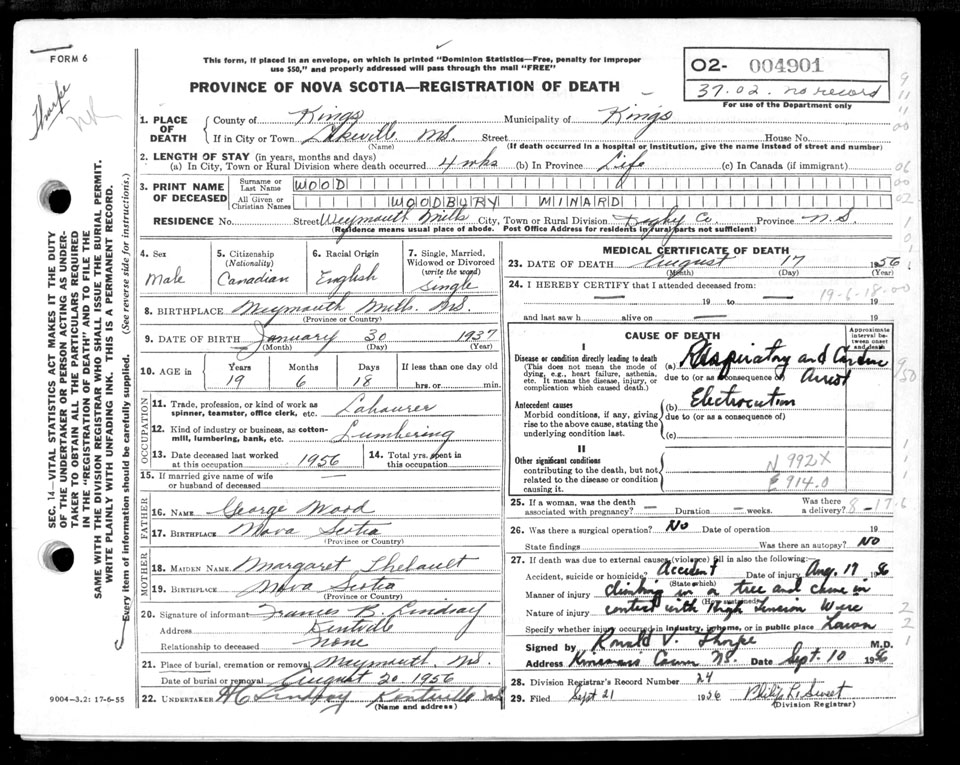 FORM 6
This form, if placed in an envelope, on which is printed "Dominion Statistics—Free, penalty for improper
use $50," and properly addressed will pass through the mail "FREE"
PROVINCE OF NOVA SCOTIA—REGISTRATION OF DEATH
02- 004901
37.02. no record
For use of the Department only
Thorpe
SEC. 14—VITAL STATISTICS ACT MAKES IT THE DUTY
OF THE UNDERTAKER OR PERSON ACTING AS UNDER-
TAKER TO OBTAIN ALL THE PARTICULARS REQUIRED
IN THE "REGISTRATION OF DEATH" AND TO FILE THE
SAME WITH THE DIVISION REGISTRAR WHO SHALL ISSUE THE BURIAL PERMIT.
WRITE PLAINLY WITH UNFADING INK. THIS IS A PERMANENT RECORD.
Every item of information should be carefully supplied. (See reverse side for instructions).
1. PLACE OF DEATH
County of Kings Municipality of Kings
If in City or Town Lakeville N.S. Street House No.
(Name) (If death occurred in a hospital or institution, give the name instead of street and number)
2. LENGTH OF STAY (in years, months and days)
(a) In City, Town or Rural Division where death occurred 4 wks (b) In Province Life (c) In Canada (if immigrant)
3. PRINT NAME OF DECEASED
Surname or Last Name WOOD
All Given or Christian Names WOODBURY MINARD
RESIDENCE No. Street Weymouth Mills City, Town or Rural Division Digby Co. Province N.S.
(Residence means usual place of abode. Post Office Address for residents in rural parts not sufficient)
4. Sex
Male
5. Citizenship (Nationality)
Canadian
6. Racial Origin
English
7. Single, Married, Widowed or Divorced (write the word)
Single
8. BIRTHPLACE Weymouth Mills N.S.
(Province or Country)
9. DATE OF BIRTH January 30 1937
(Month) (Day) (Year)
10. AGE in Years Months Days If less than one day old
19 6 18 hrs. or min.
OCCUPATION
11. Trade, profession, or kind of work as spinner, teamster, office clerk, etc. Labourer
12. Kind of industry or business, as cotton-mill, lumbering, bank, etc. Lumbering
13. Date deceased last worked at this occupation 1956
14. Total yrs. spent in this occupation
15. If married give name of wife or husband of deceased —
FATHER
16. NAME George Wood
17. BIRTHPLACE Nova Scotia
(Province or Country)
MOTHER
18. MAIDEN NAME Margaret Thebault
19. BIRTHPLACE Nova Scotia
(Province or Country)
20. Signature of informant Frances B. Lindsay
Address Kentville
Relationship to deceased None
21. Place of burial, cremation or removal Weymouth, N.S.
Date of burial or removal August 20 1956
22. UNDERTAKER Lindsay Kentville N.S.
(Name and address)
9004—3.2: 17-6-55
MEDICAL CERTIFICATE OF DEATH
23. DATE OF DEATH August 17 1956
(Month) (Day) (Year)
24. I HEREBY CERTIFY that I attended deceased from:
— 19 to — 19
19-6-18-00
and last saw h alive on — 19
CAUSE OF DEATH
Approximate interval between onset and death
I
Disease or condition directly leading to death
(This does not mean the mode of dying, e.g., heart failure, asthenia, etc. It means the disease, injury, or complication which caused death.)
(a) Respiratory and Cardiac Arrest
due to (or as a consequence of)
Antecedent causes
Morbid conditions, if any, giving rise to the above cause, stating the underlying condition last.
(b) Electrocution
due to (or as a consequence of)
(c)
II
Other significant conditions
contributing to the death, but not related to the disease or condition causing it.
N 992X
E 914.0
25. If a woman, was the death associated with pregnancy? — Duration — weeks. Was there a delivery?
8-17-6
26. Was there a surgical operation? No Date of operation 19
State findings Was there an autopsy? No
27. If death was due to external causes (violence) fill in also the following:
Accident, suicide or homicide? Accident Date of injury Aug. 17 1956
(State which)
Manner of injury climbing in a tree and came in
(How sustained)
Nature of injury contact with high tension wire
Specify whether injury occurred in industry, in home, or in public place Lawn
Signed by Ronald V. Thorpe M.D.
Address N.S. Date Sept. 10 1956
28. Division Registrar's Record Number 24
29. Filed Sept 21 1956 Philip R. Sweet
(Division Registrar)